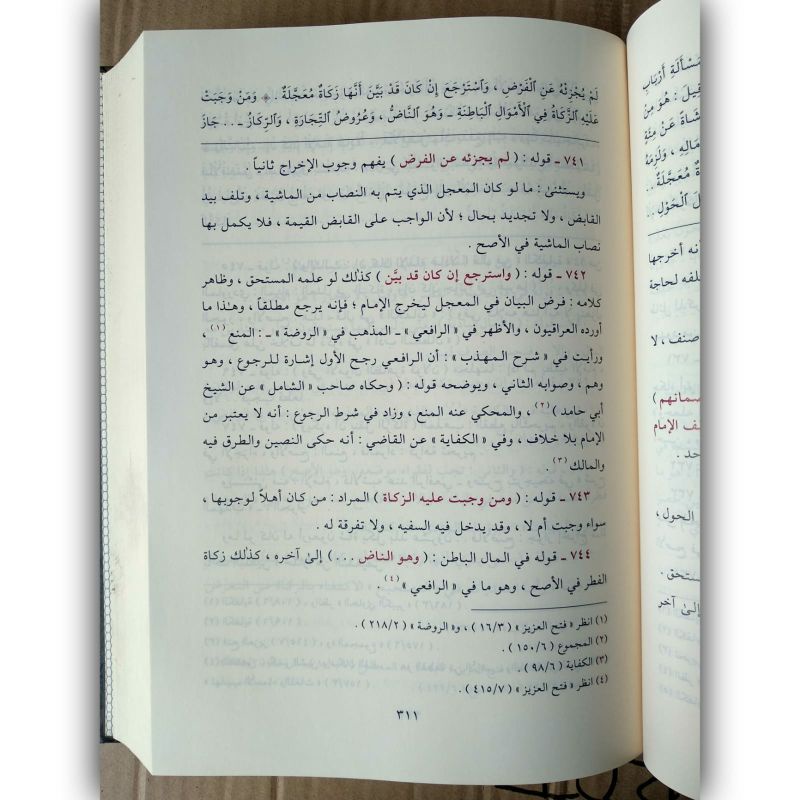 لَمْ يُجْزِئْهُ عَنِ ٱلْفَرْضِ ، وَٱسْتَرْجَعَ إِنْ كَانَ قَدْ بَيَّنَ أَنَّهَا زَكَاةٌ مُعَجَّلَةٌ . وَمَنْ وَجَبَتْ
عَلَيْهِ ٱلزَّكَاةُ فِي ٱلْأَمْوَالِ ٱلْبَاطِنَةِ ـ وَهُوَ ٱلنَّاضُّ ، وَعُرُوضُ ٱلتِّجَارَةِ ، وَٱلرِّكَازُ ـ . . جَازَ
٧٤١ ـ قوله : ( لم يجزئه عن الفرض ) يفهم وجوب الإخراج ثانياً .
ويستثنىٰ : ما لو كان المعجل الذي يتم به النصاب من الماشية ، وتلف بيد
القابض ، ولا تجديد بحال ؛ لأن الواجب على القابض القيمة ، فلا يكمل بها
نصاب الماشية في الأصح .
٧٤٢ ـ قوله : ( واسترجع إن كان قد بيَّن ) كذٰلك لو علمه المستحق ، وظاهر
كلامه : فرض البيان في المعجل ليخرج الإمام ؛ فإنه يرجع مطلقاً ، وهٰذا ما
أورده العراقيون ، والأظهر في « الرافعي » ـ المذهب في « الروضة » ـ : المنع (١) ،
ورأيت في « شرح المهذب » : أن الرافعي رجح الأول إشارة للرجوع ، وهو
وهم ، وصوابه الثاني ، ويوضحه قوله : ( وحكاه صاحب « الشامل » عن الشيخ
أبي حامد ) (٢) ، والمحكي عنه المنع ، وزاد في شرط الرجوع : أنه لا يعتبر من
الإمام بلا خلاف ، وفي « الكفاية » عن القاضي : أنه حكى النصين والطرق فيه
والمالك (٣) .
٧٤٣ ـ قوله : ( ومن وجبت عليه الزكاة ) المراد : من كان أهلاً لوجوبها ،
سواء وجبت أم لا ، وقد يدخل فيه السفيه ، ولا تفرقة له .
٧٤٤ ـ قوله في المال الباطن : ( وهو الناض . . . ) إلىٰ آخره ، كذٰلك زكاة
الفطر في الأصح ، وهو ما في « الرافعي » (٤) .
(١) انظر « فتح العزيز » ( ١٦/٣ ) ، و« الروضة » ( ٢١٨/٢ ) .
(٢) المجموع ( ١٥٠/٦ ) .
(٣) الكفاية ( ٩٨/٦ ) .
(٤) انظر « فتح العزيز » ( ٤١٥/٧ ) .
٣١١
مَسْأَلَةِ أَرْبَابِ
قِيلَ : هُوَ مِنْ
شَاةً عَنْ مِئَةِ
مَالِهِ ، وَلَزِمَهُ
مُعَجَّلَةٌ . .
ٱلْحَوْلِ . .
أنه أخرجها
لحاجة
صنف ، لا
ضمانهم )
الإمام
الحول ،
مستحق .
إلىٰ آخر